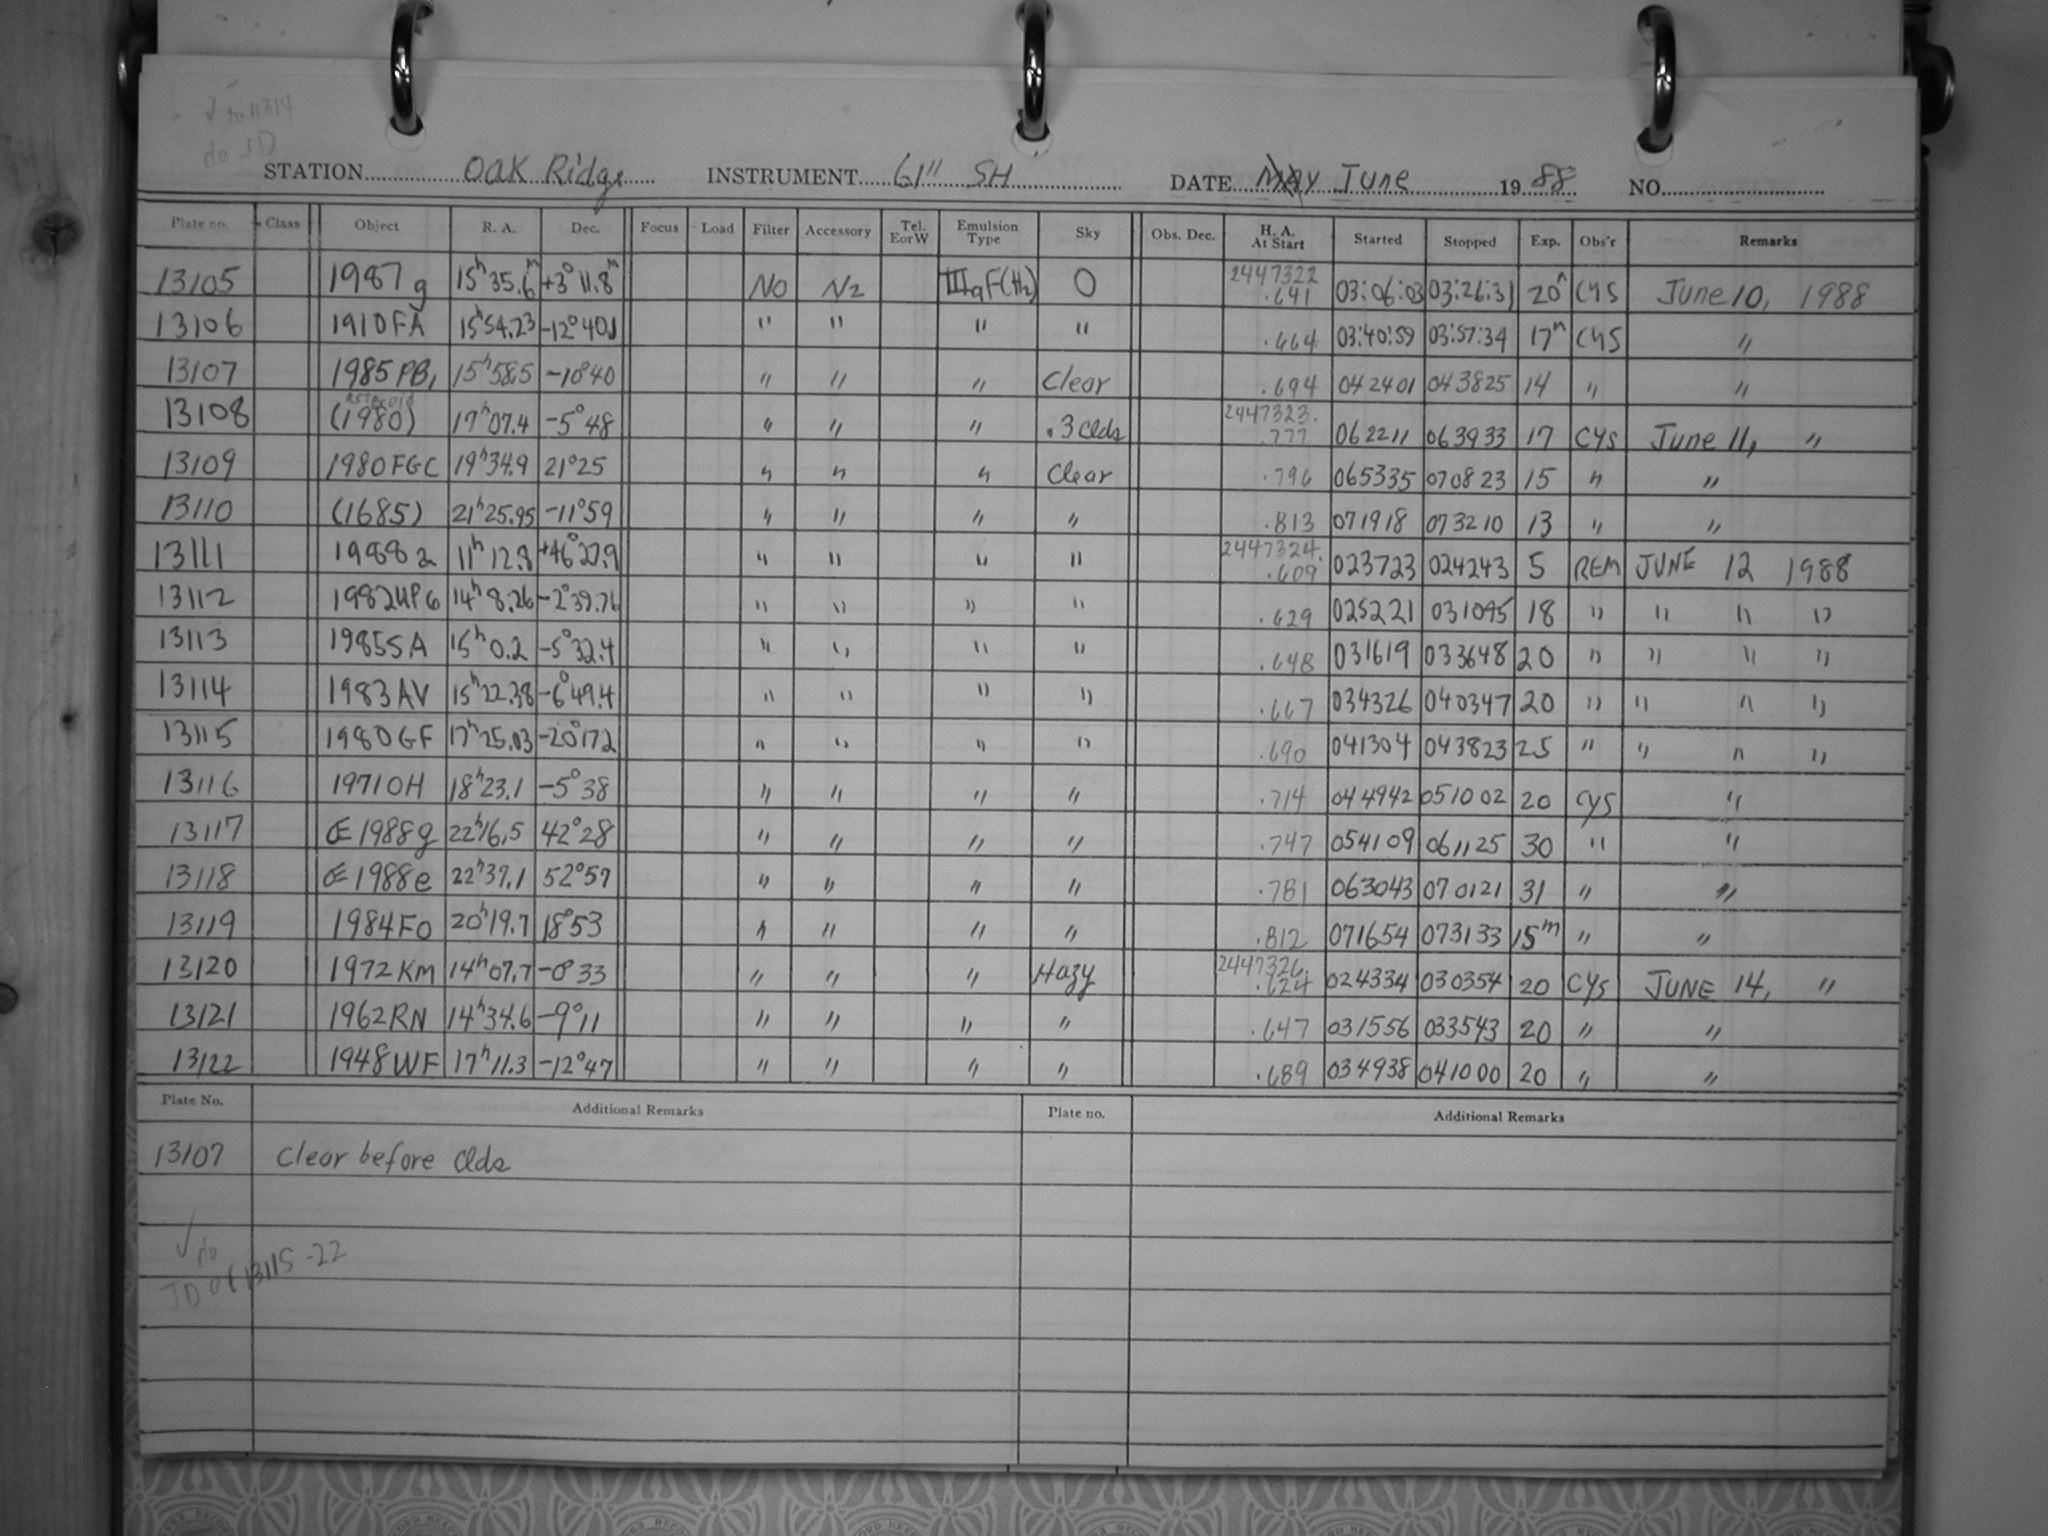 STATION Oak Ridge INSTRUMENT 61" SH DATE May June 1988 NO.
Plate no. Class Object R. A. Dec. Focus Load Filter Accessory Tel. E or W Emulsion Type Sky Obs. Dec. H. A. At Start Started Stopped Exp. Obs'r Remarks
13105 1987g 15h 35.6m +3° 11.8m No N2 IIIaF(H2) O 2447322 .641 03:06:03 03:26:31 20m CYS June 10, 1988
13106 1910FA 15h54.23 -12° 40.1 " " " " .664 03:40:59 03:57:34 17m CYS "
13107 1985PB1 15h58.5 -10°40 " " " Clear .694 042401 043825 14 " "
13108 asteroid (1980) 17h07.4 -5°48 " " " .3 clds 2447323. .777 062211 063933 17 CYS June 11, "
13109 1980FGC 19h34.9 21°25 " " " Clear .796 065335 070823 15 " "
13110 (1685) 21h25.95 -11°59 " " " " .813 071918 073210 13 " "
13111 1988a 11h 12.8 +46°27.9 " " " " 2447324. .609 023723 024243 5 REM JUNE 12 1988
13112 1982UP6 14h 8.26 -2°39.76 " " " " .629 025221 031045 18 " " " "
13113 1985SA 15h 0.2 -5°32.4 " " " " .648 031619 033648 20 " " " "
13114 1983AV 15h22.38 -6°49.4 " " " " .667 034326 040347 20 " " " "
13115 1980GF 17h25.03 -20°17.2 " " " " .690 041304 043823 25 " " " "
13116 1971OH 18h23.1 -5°38 " " " " .714 044942 051002 20 CYS "
13117 1988g 22h16.5 42°28 " " " " .747 054109 061125 30 " "
13118 1988e 22h37.1 52°57 " " " " .781 063043 070121 31 " "
13119 1984FO 20h19.7 18°53 " " " " .812 071654 073133 15m " "
13120 1972KM 14h07.7 -0°33 " " " Hazy 2447326. .624 024334 030354 20 CYS JUNE 14, "
13121 1962RN 14h34.6 -9°11 " " " " .647 031556 033543 20 " "
13122 1948WF 17h11.3 -12°47 " " " " .689 034938 041000 20 " "
Plate No. Additional Remarks Plate no. Additional Remarks
13107 Clear before clds
√ do
JD of 13115-22